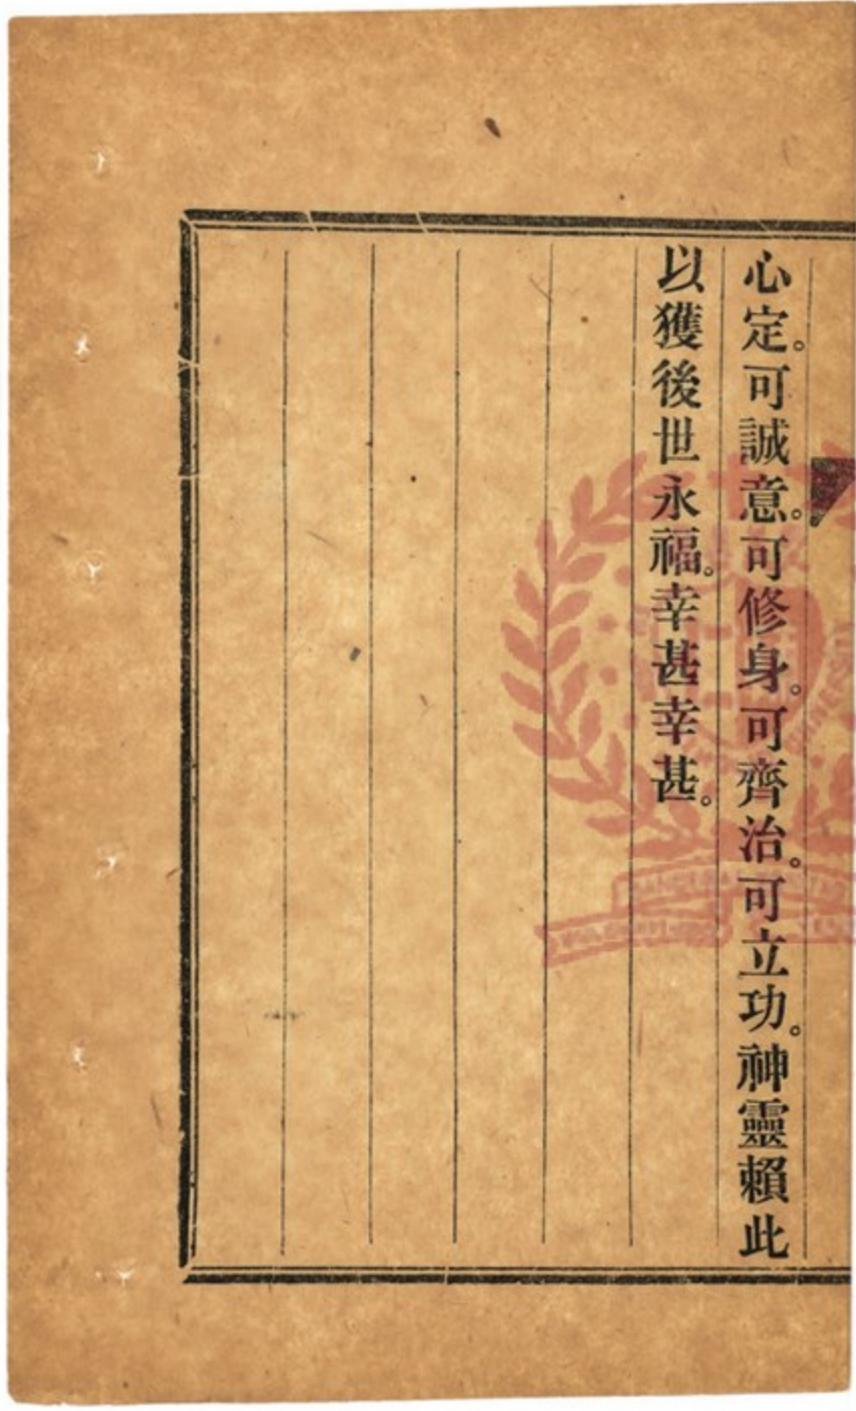 心定。可誠意。可修身。可齊治。可立功。神靈賴此
以獲後世永福。幸甚幸甚。